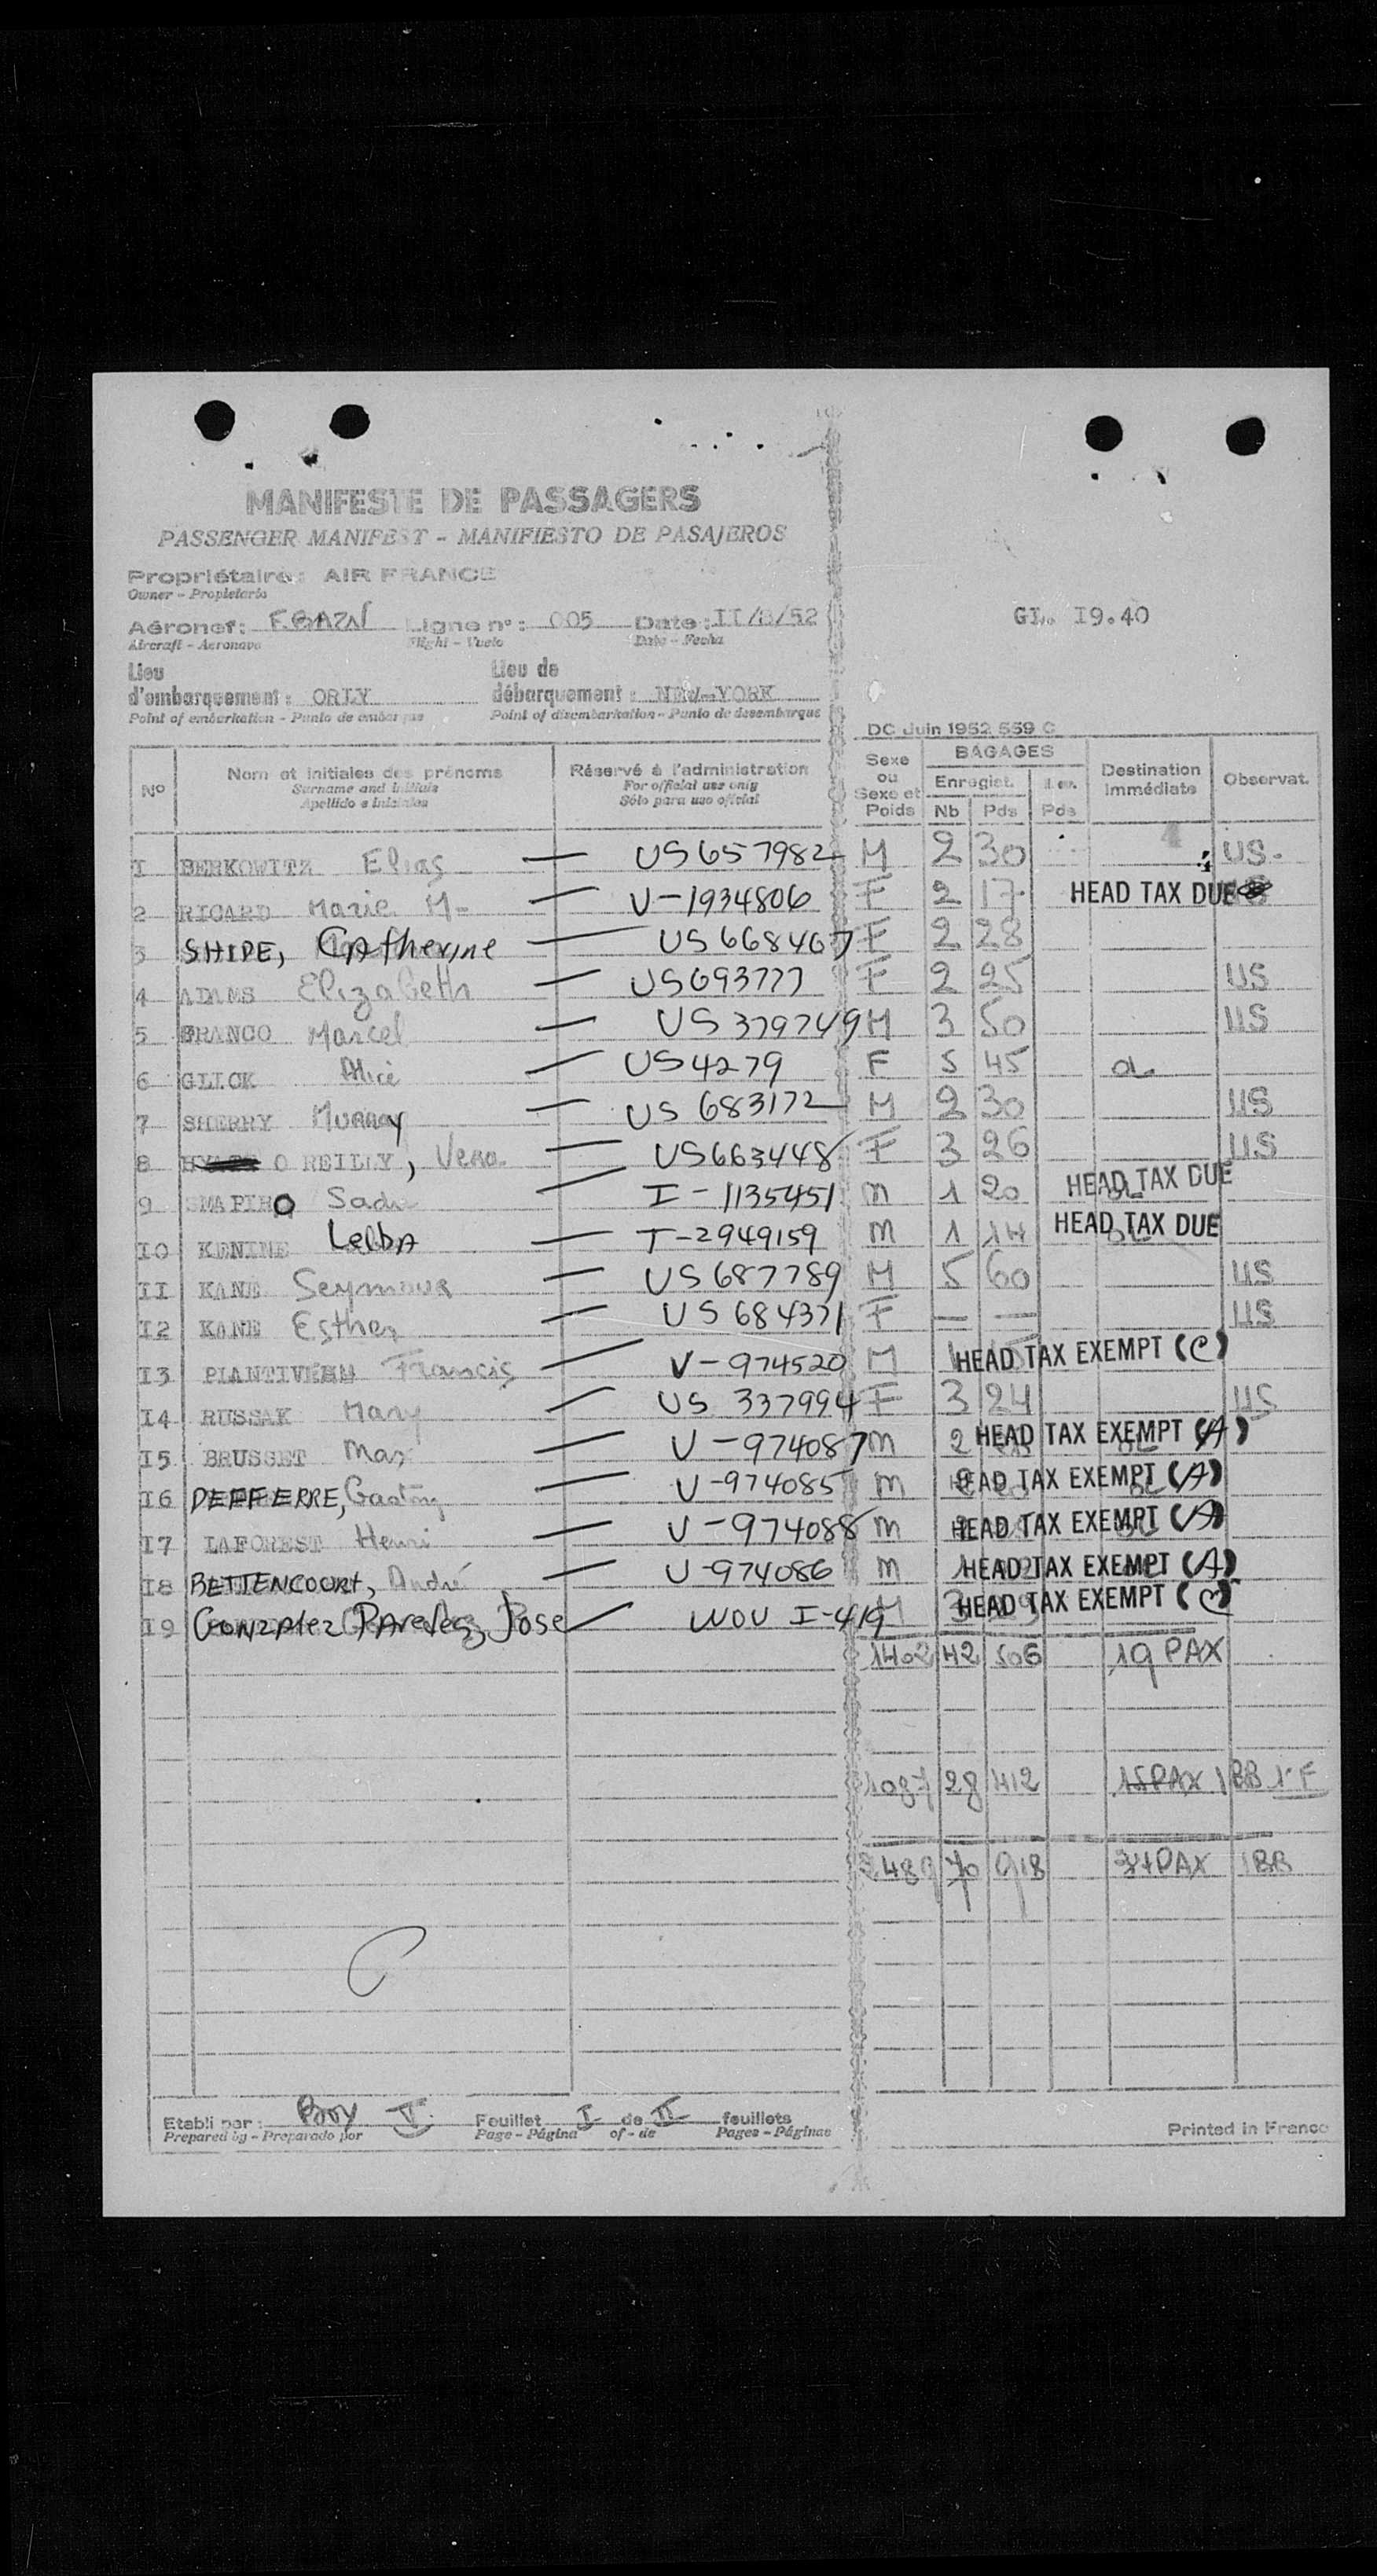 MANIFESTE DE PASSAGERS
PASSENGER MANIFEST - MANIFIESTO DE PASAJEROS
Propriétaire: AIR FRANCE
Owner - Propietario
Aéronef: F.BAZN Ligne n°: 005 Date: II/ /52 GL. I9.40
Aircraft - Aeronave Flight - Vuelo Date - Fecha
Lieu d'embarquement: ORLY Lieu de débarquement: NEW-YORK
Point of embarkation - Punto de embarque Point of disembarkation - Punto de desembarque
DC Juin 1952 559 C
N° Nom et initiales des prénoms Réservé à l'administration Sexe ou Sexe et Poids BAGAGES Destination immédiate Observat.
Surname and initials For official use only Enregist.
Apellido e iniciales Sólo para uso oficial Nb Pds Pds
I BERKOWITZ Elias — US 657982 M 2 30 US.
2 RICARD Marie M- — V-1934806 F 2 17 HEAD TAX DUE
3 SHIPE, Catherine — US 668467 F 2 28
4 ADAMS Elizabeth — US 693777 F 2 25 US
5 BRANCO Marcel — US 379749 M 3 50 US
6 GLICK Alice — US 4279 F 5 45
7 SHERRY Murray — US 683172 M 2 30 US
8 O REILLY, Vera — US 663448 F 3 26 US
9 SHAPIRO Sadie — I-1135451 m 1 20 HEAD TAX DUE
IO KENINE Leiba — T-2949159 m 1 14 HEAD TAX DUE
II KANE Seymour — US 687789 M 5 60 US
I2 KANE Esther — US 684371 F — — US
I3 PLANTIVEAU Francis — V-974520 M HEAD TAX EXEMPT (C)
I4 RUSSAK Mary — US 337994 F 3 24 US
I5 BRUSSET Max — V-974087 m 2 HEAD TAX EXEMPT (A)
I6 DEFFERRE, Gaston — V-974085 m HEAD TAX EXEMPT (A)
I7 LAFOREST Henri — V-974088 m HEAD TAX EXEMPT (A)
I8 BETTENCOURT, André — V-974086 m HEAD TAX EXEMPT (A)
I9 Gonzalez Paredes, Jose — WOV I-419 M HEAD TAX EXEMPT (C)
1402 42 506 19 PAX
1087 28 412 15 PAX 1 BB 1'F
2489 70 918 34 PAX 1 BB
Etabli par: Feuillet I de II feuillets
Prepared by - Preparado por Page - Página of - de Pages - Páginas
Printed in France